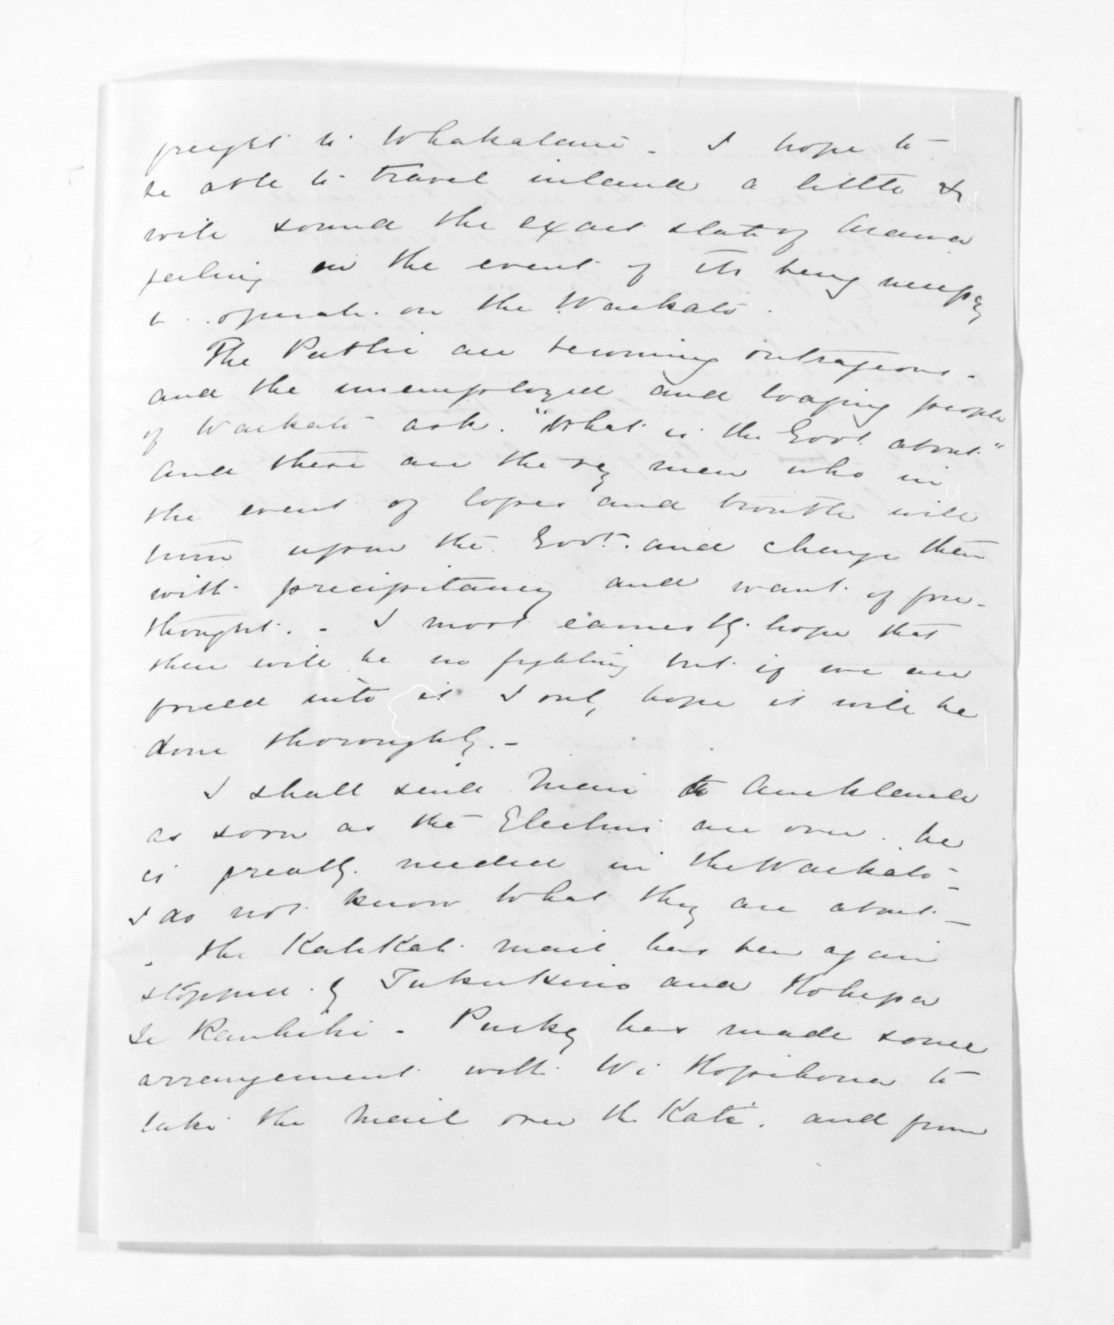 freight to Whakatane - I hope to
be able to travel inland a little &
will sound the exact state of Arawa
feeling in the event of its being necessy
to operate on the Waikato.
The Public are becoming outrageous -
and the unemployed and loafing people
of Waikato ask. "What is the Govt. about"
and these are the very men who in
the event of losses and trouble will
turn upon the Govt. and charge them
with precipitancy and want of fore-
thought. - I most earnestly hope that
there will be no fighting but if we are
forced into it I only hope it will be
done thoroughly. -
I shall send Mair to Auckland
as soon as the Elections are over. he
is greatly needed in the Waikato -
I do not know what they are about -
The KatiKati mail has been again
stopped by Tukukino and Hohepa
Te Rauhihi - Puckey has made some
arrangement with Wi Hopihona to
take the Mail over the Kati. and from